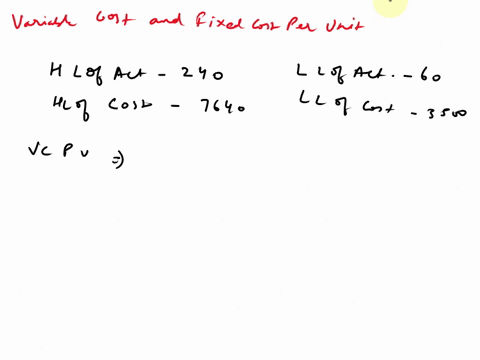 Variable Cost and Fixed Cost Per Unit
H L of Act - 240
L L of Act. - 60
HL of Cost - 7640
LL of Cost - 3500
VC P U ⇒